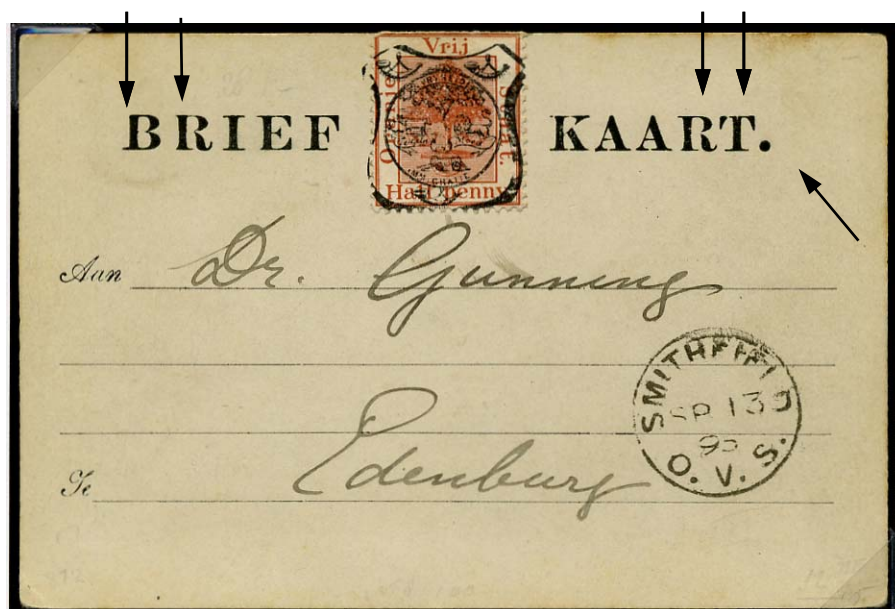 Vrij
BRIEF KAART.
Oranje
Staat.
Half penny
Aan Dr. Gunning
Te Edenburg
SMITHFIELD
SP 13
95
O. V. S.